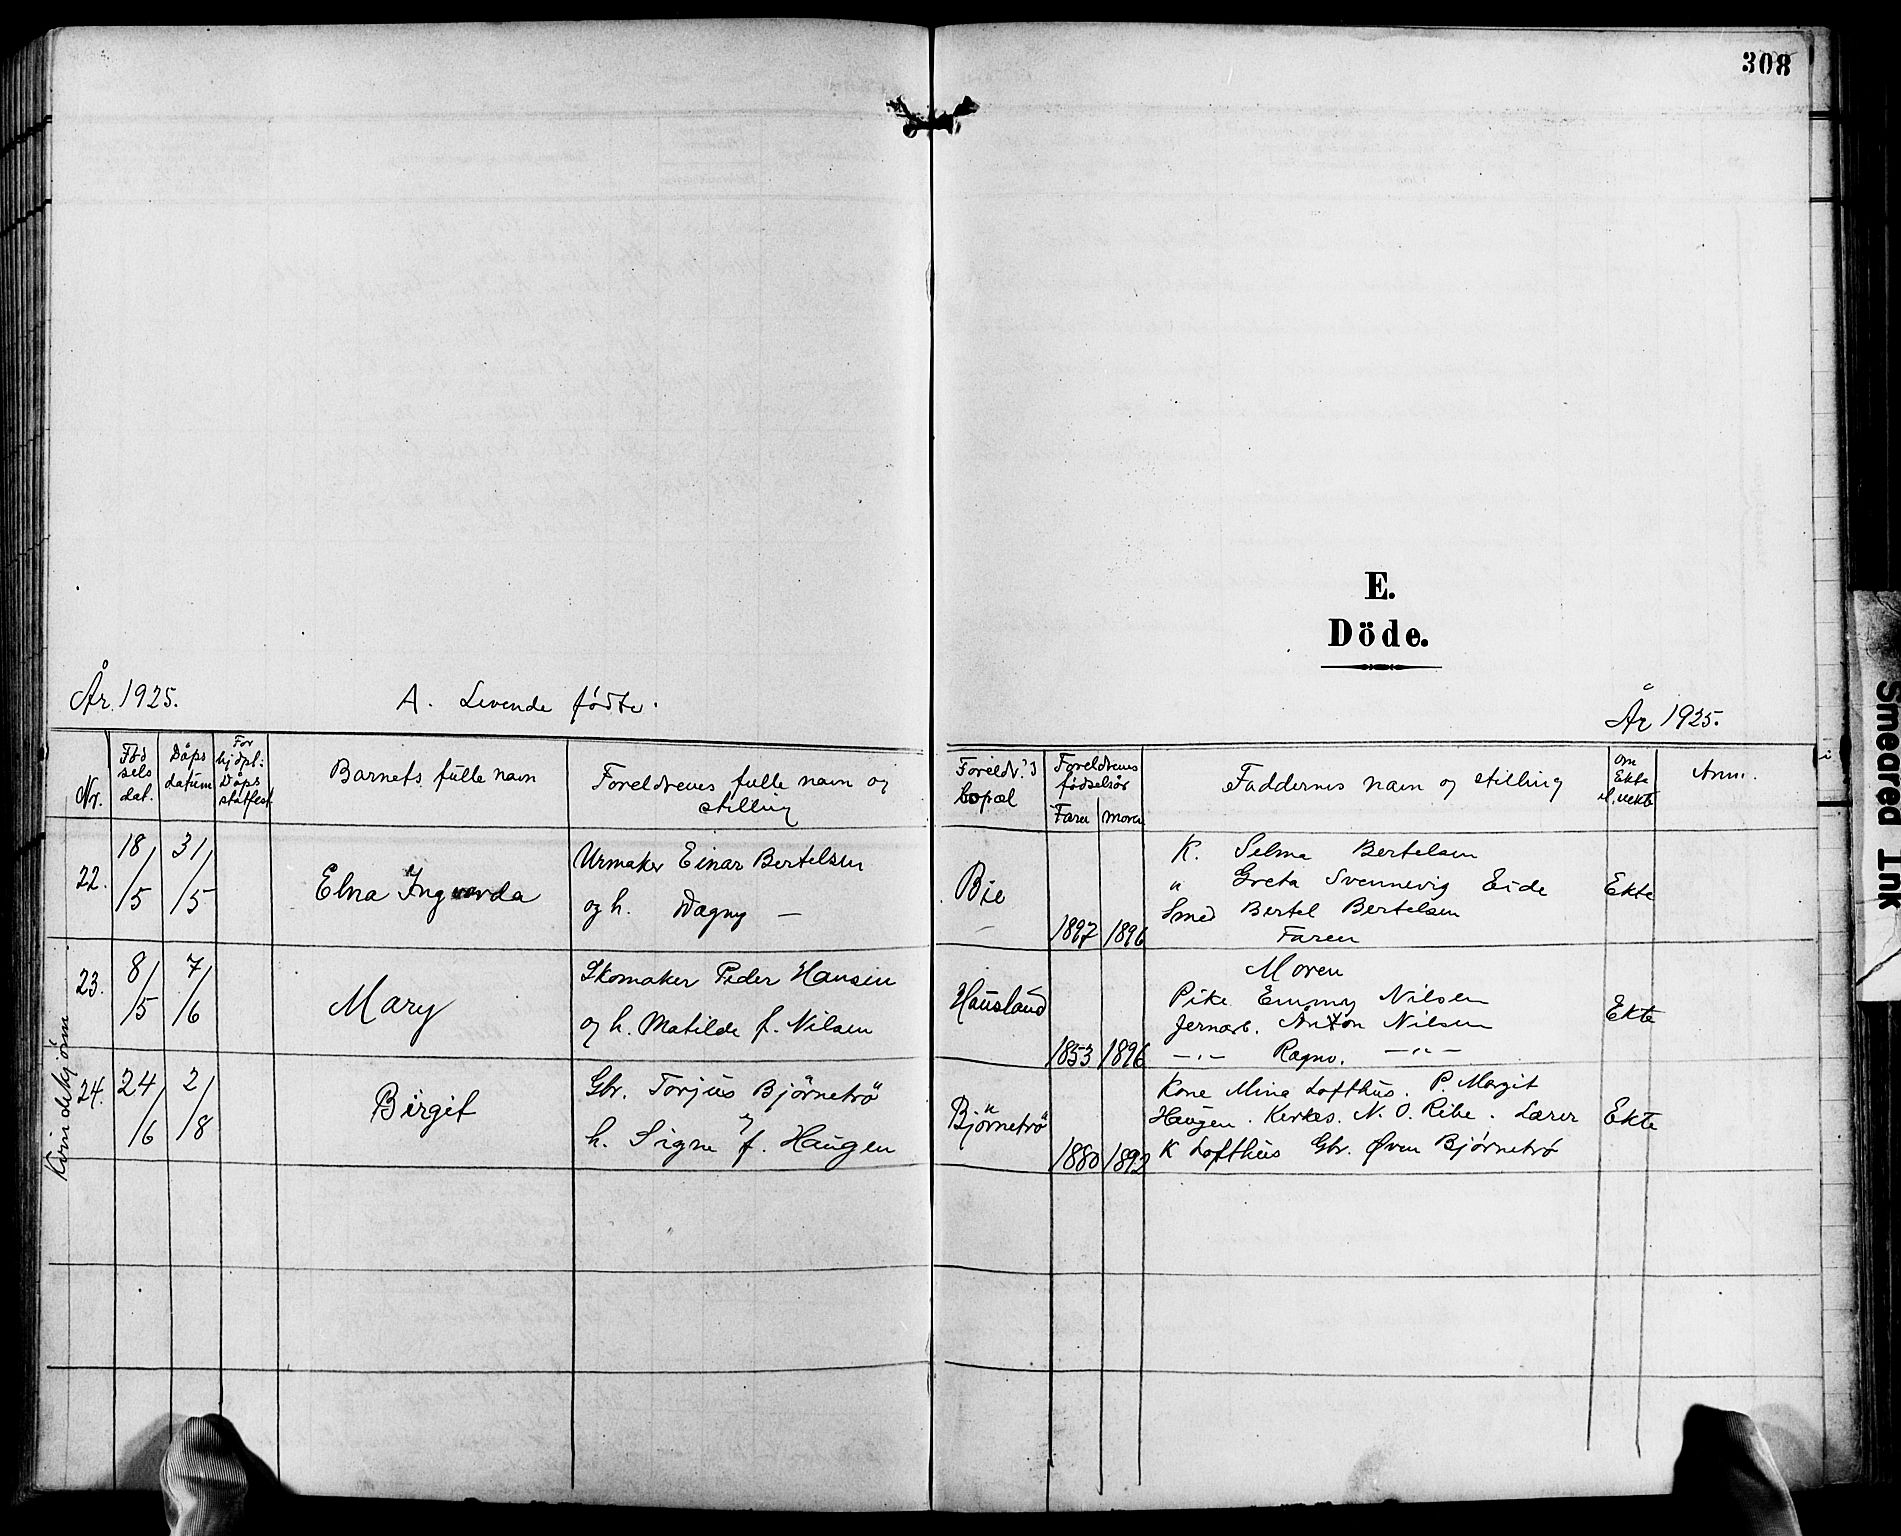 308
E.
Döde.
År 1925.
A. Levende fødte.
År 1925.
Nr.
Fød sels dat.
Dåps datum
For hjdpl: Dåps statfest
Barnets fulle navn
Foreldrenes fulle navn og stilling
Foreldr.'s bopæl
Foreldrenes fødselsår
Faren
Moren
Faddernes navn og stilling
Om Ekte el. uekte
Anm.
22.
18/5
31/5
Elna Ingvarda
Urmaker Einar Bertelsen
og h. Dagny —
Bie
1897
1896
K. Selma Bertelsen
" Greta Svennevig Eide
Smed Bertel Bertelsen
Faren
Ekte
23.
8/5
7/6
Mary
Skomaker Peder Hansen
og h. Matilde f. Nilsen
Hausland
1853
1896
Moren
Pike Emmy Nilsen
Jernarb. Anton Nilsen
—"— Ragnv. —"—
Ekte
24.
24/6
2/8
Birgit
Gbr. Torjus Bjørnetrø
og
h. Signe f. Haugen
Bjørnetrø
1880
1892
Kone Mina Lofthus. P. Margit
Haugen. Kerkes. N. O. Ribe. Lærer
K Lofthus Gbr. Øven Bjørnetrø
Ekte
Smeared Ink